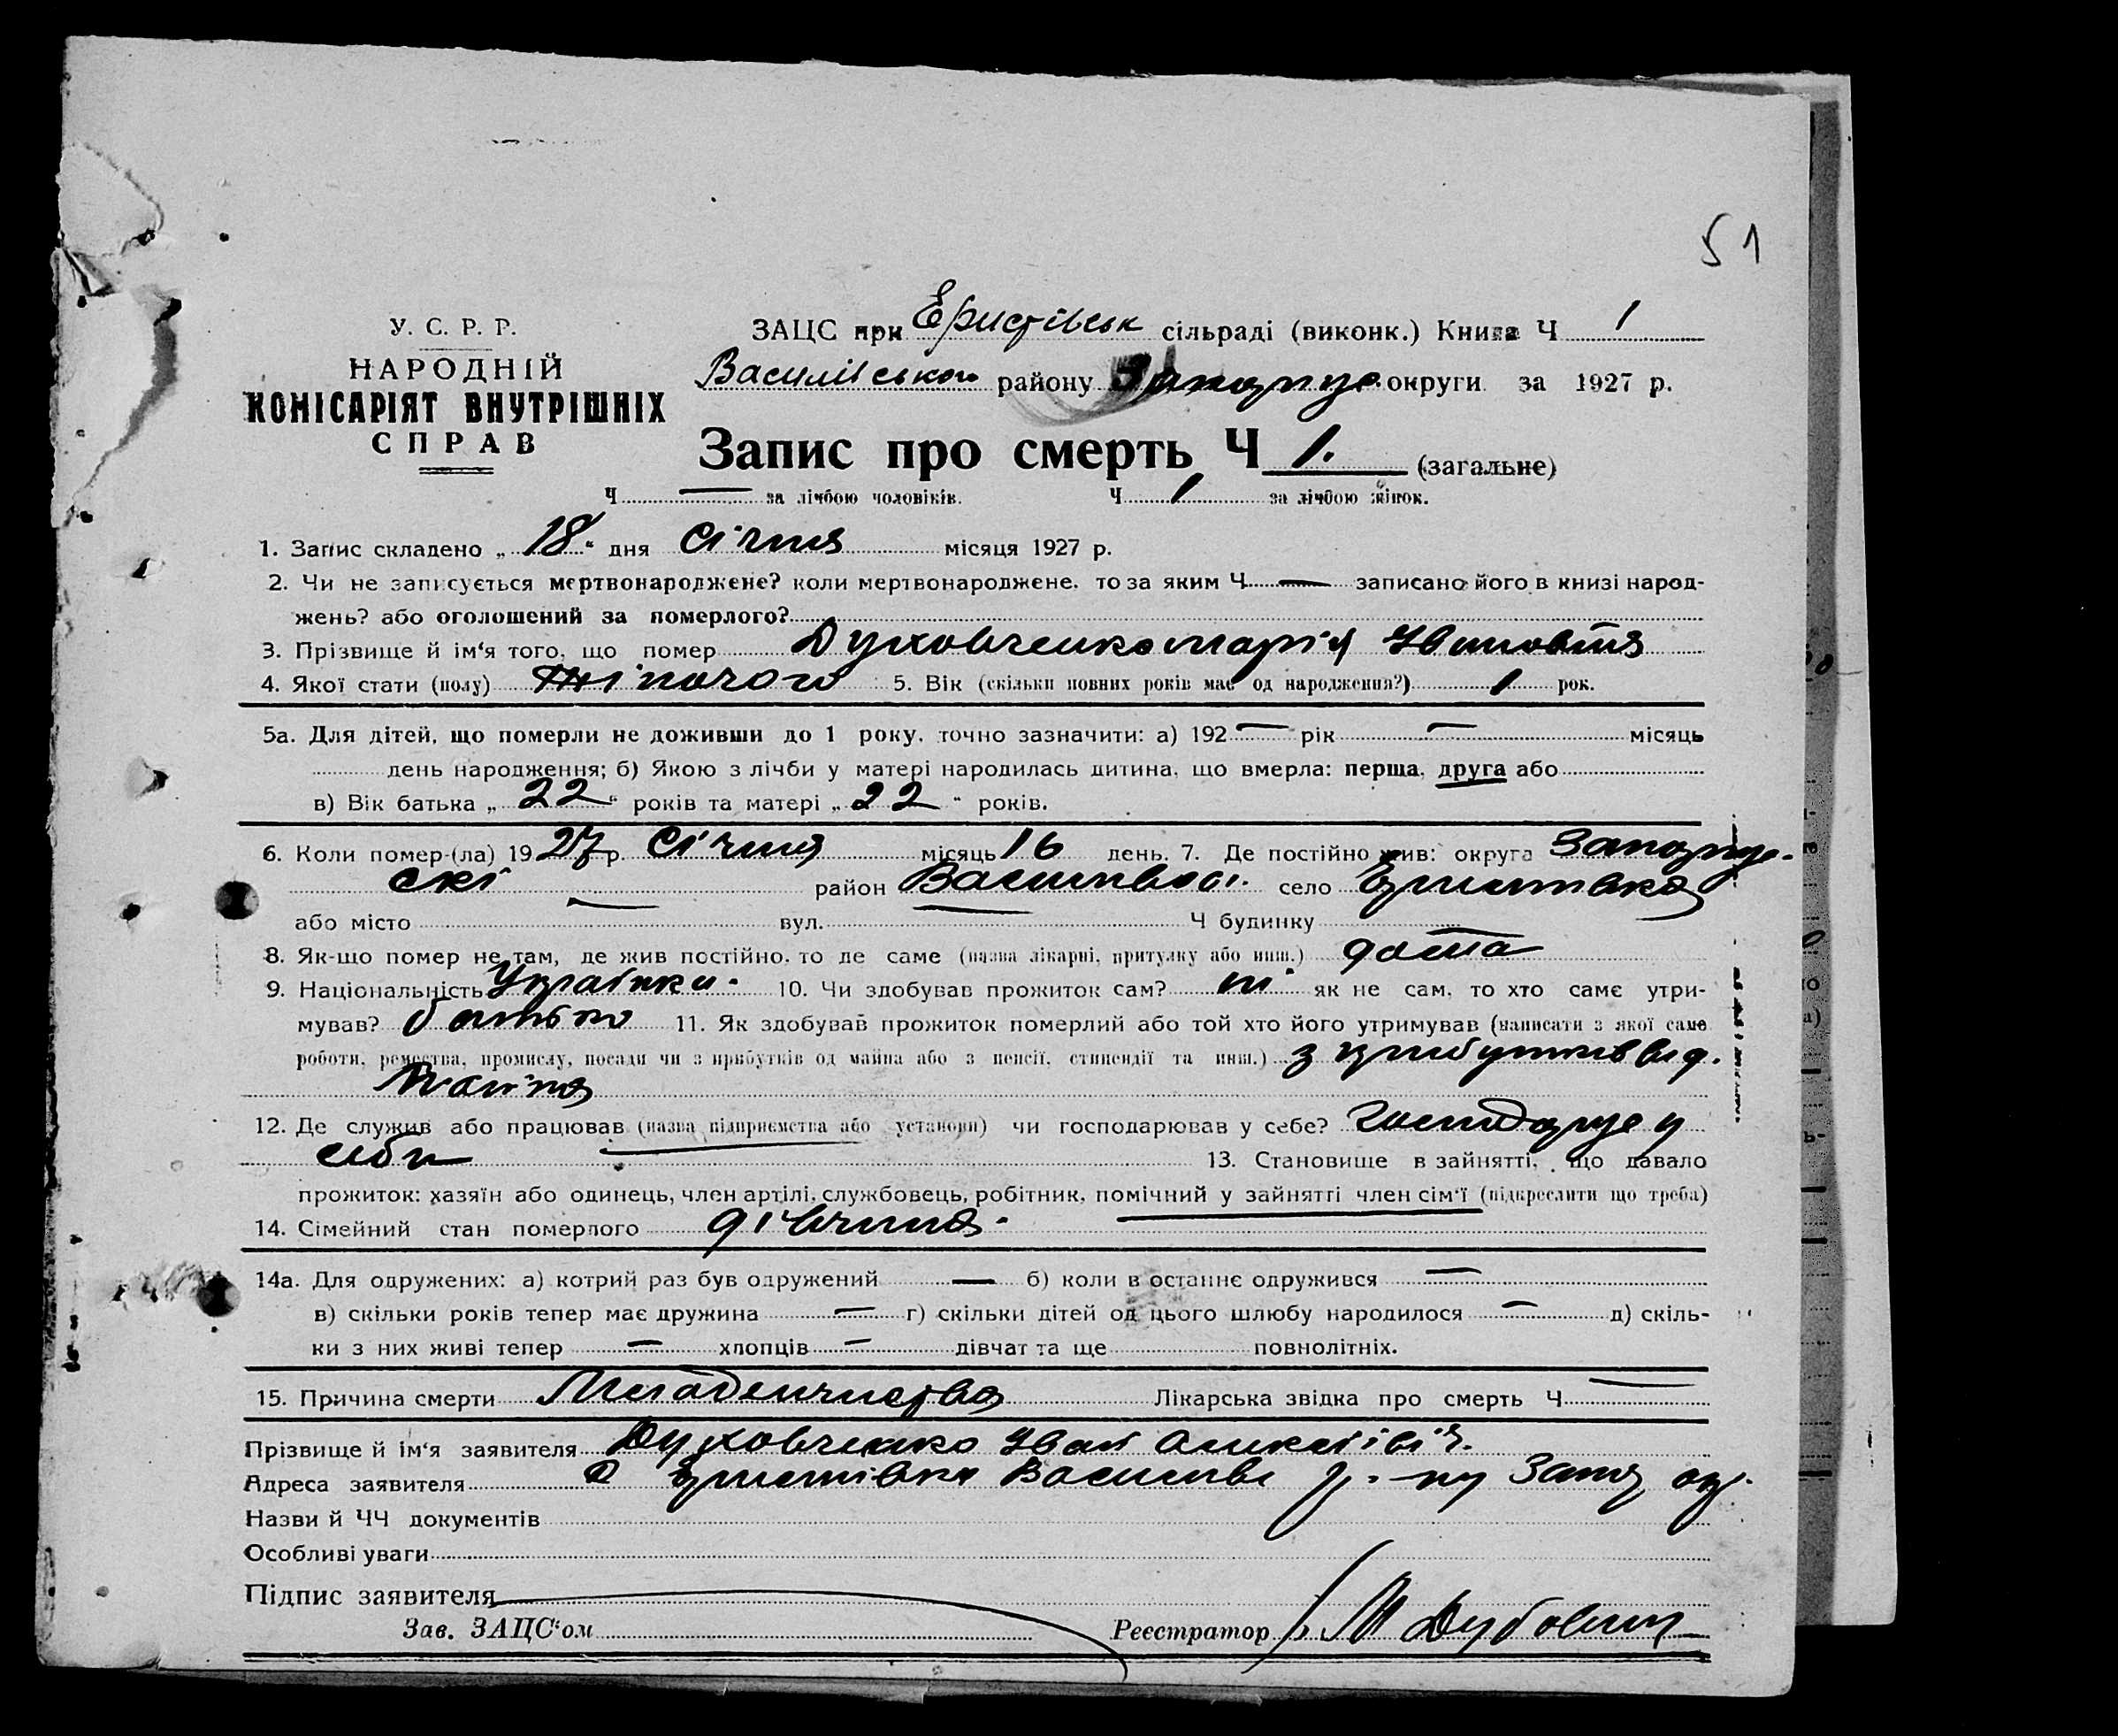 51
У. С. Р. Р.
НАРОДНІЙ
КОМІСАРІЯТ ВНУТРІШНІХ
СПРАВ
ЗАЦС при Еристівськ сільраді (виконк.) Книга Ч 1
Василівського району Запоріж. округи за 1927 р.
Запис про смерть Ч 1. (загальне)
Ч — за лічбою чоловіків. Ч 1 за лічбою жінок.
1. Запис складено „ 18 " дня Січня місяця 1927 р.
2. Чи не записується мертвонароджене? коли мертвонароджене, то за яким Ч — записано його в книзі народ-
жень? або оголошений за померлого?
3. Прізвище й ім'я того, що помер Духовченко Марія Ивановна
4. Якої стати (полу) Жіночого 5. Вік (скільки повних років має од народження?) 1 рок.
5а. Для дітей, що померли не доживши до 1 року, точно зазначити: а) 192 — рік — місяць
день народження; б) Якою з лічби у матері народилась дитина, що вмерла: перша, друга або
в) Вік батька „ 22 " років та матері „ 22 " років.
6. Коли помер-(ла) 1927 р. Січня місяць 16 день. 7. Де постійно жив: округа Запоріж-
скі район Василівськ. село Еристівка
або місто — вул. — Ч будинку —
8. Як-що помер не там, де жив постійно, то де саме (назва лікарні, притулку або инш.) дома
9. Національність Українка. 10. Чи здобував прожиток сам? ні як не сам, то хто саме утри-
мував? батько 11. Як здобував прожиток померлий або той хто його утримував (написати з якої саме
роботи, ремества, промислу, посади чи з прибутків од майна або з пенсії, стипендії та инш.) з прибутків від.
майна
12. Де служив або працював (назва підприємства або установи) чи господарював у себе? Господарує у
себе 13. Становище в зайнятті, що давало
прожиток: хазяїн або одинець, член артілі, службовець, робітник, помічний у зайнятті член сім'ї (підкреслити що треба)
14. Сімейний стан померлого дівчина.
14а. Для одружених: а) котрий раз був одружений — б) коли в останнє одружився —
в) скільки років тепер має дружина — г) скільки дітей од цього шлюбу народилося — д) скіль-
ки з них живі тепер — хлопців — дівчат та ще повнолітніх.
15. Причина смерти Младенчиство Лікарська звідка про смерть Ч —
Прізвище й ім'я заявителя Духовченко Иван Алексіївіч.
Адреса заявителя с Еристівка Василів р-ну Запор ок.
Назви й ЧЧ документів
Особливі уваги
Підпис заявителя
Зав. ЗАЦС'ом Реєстратор